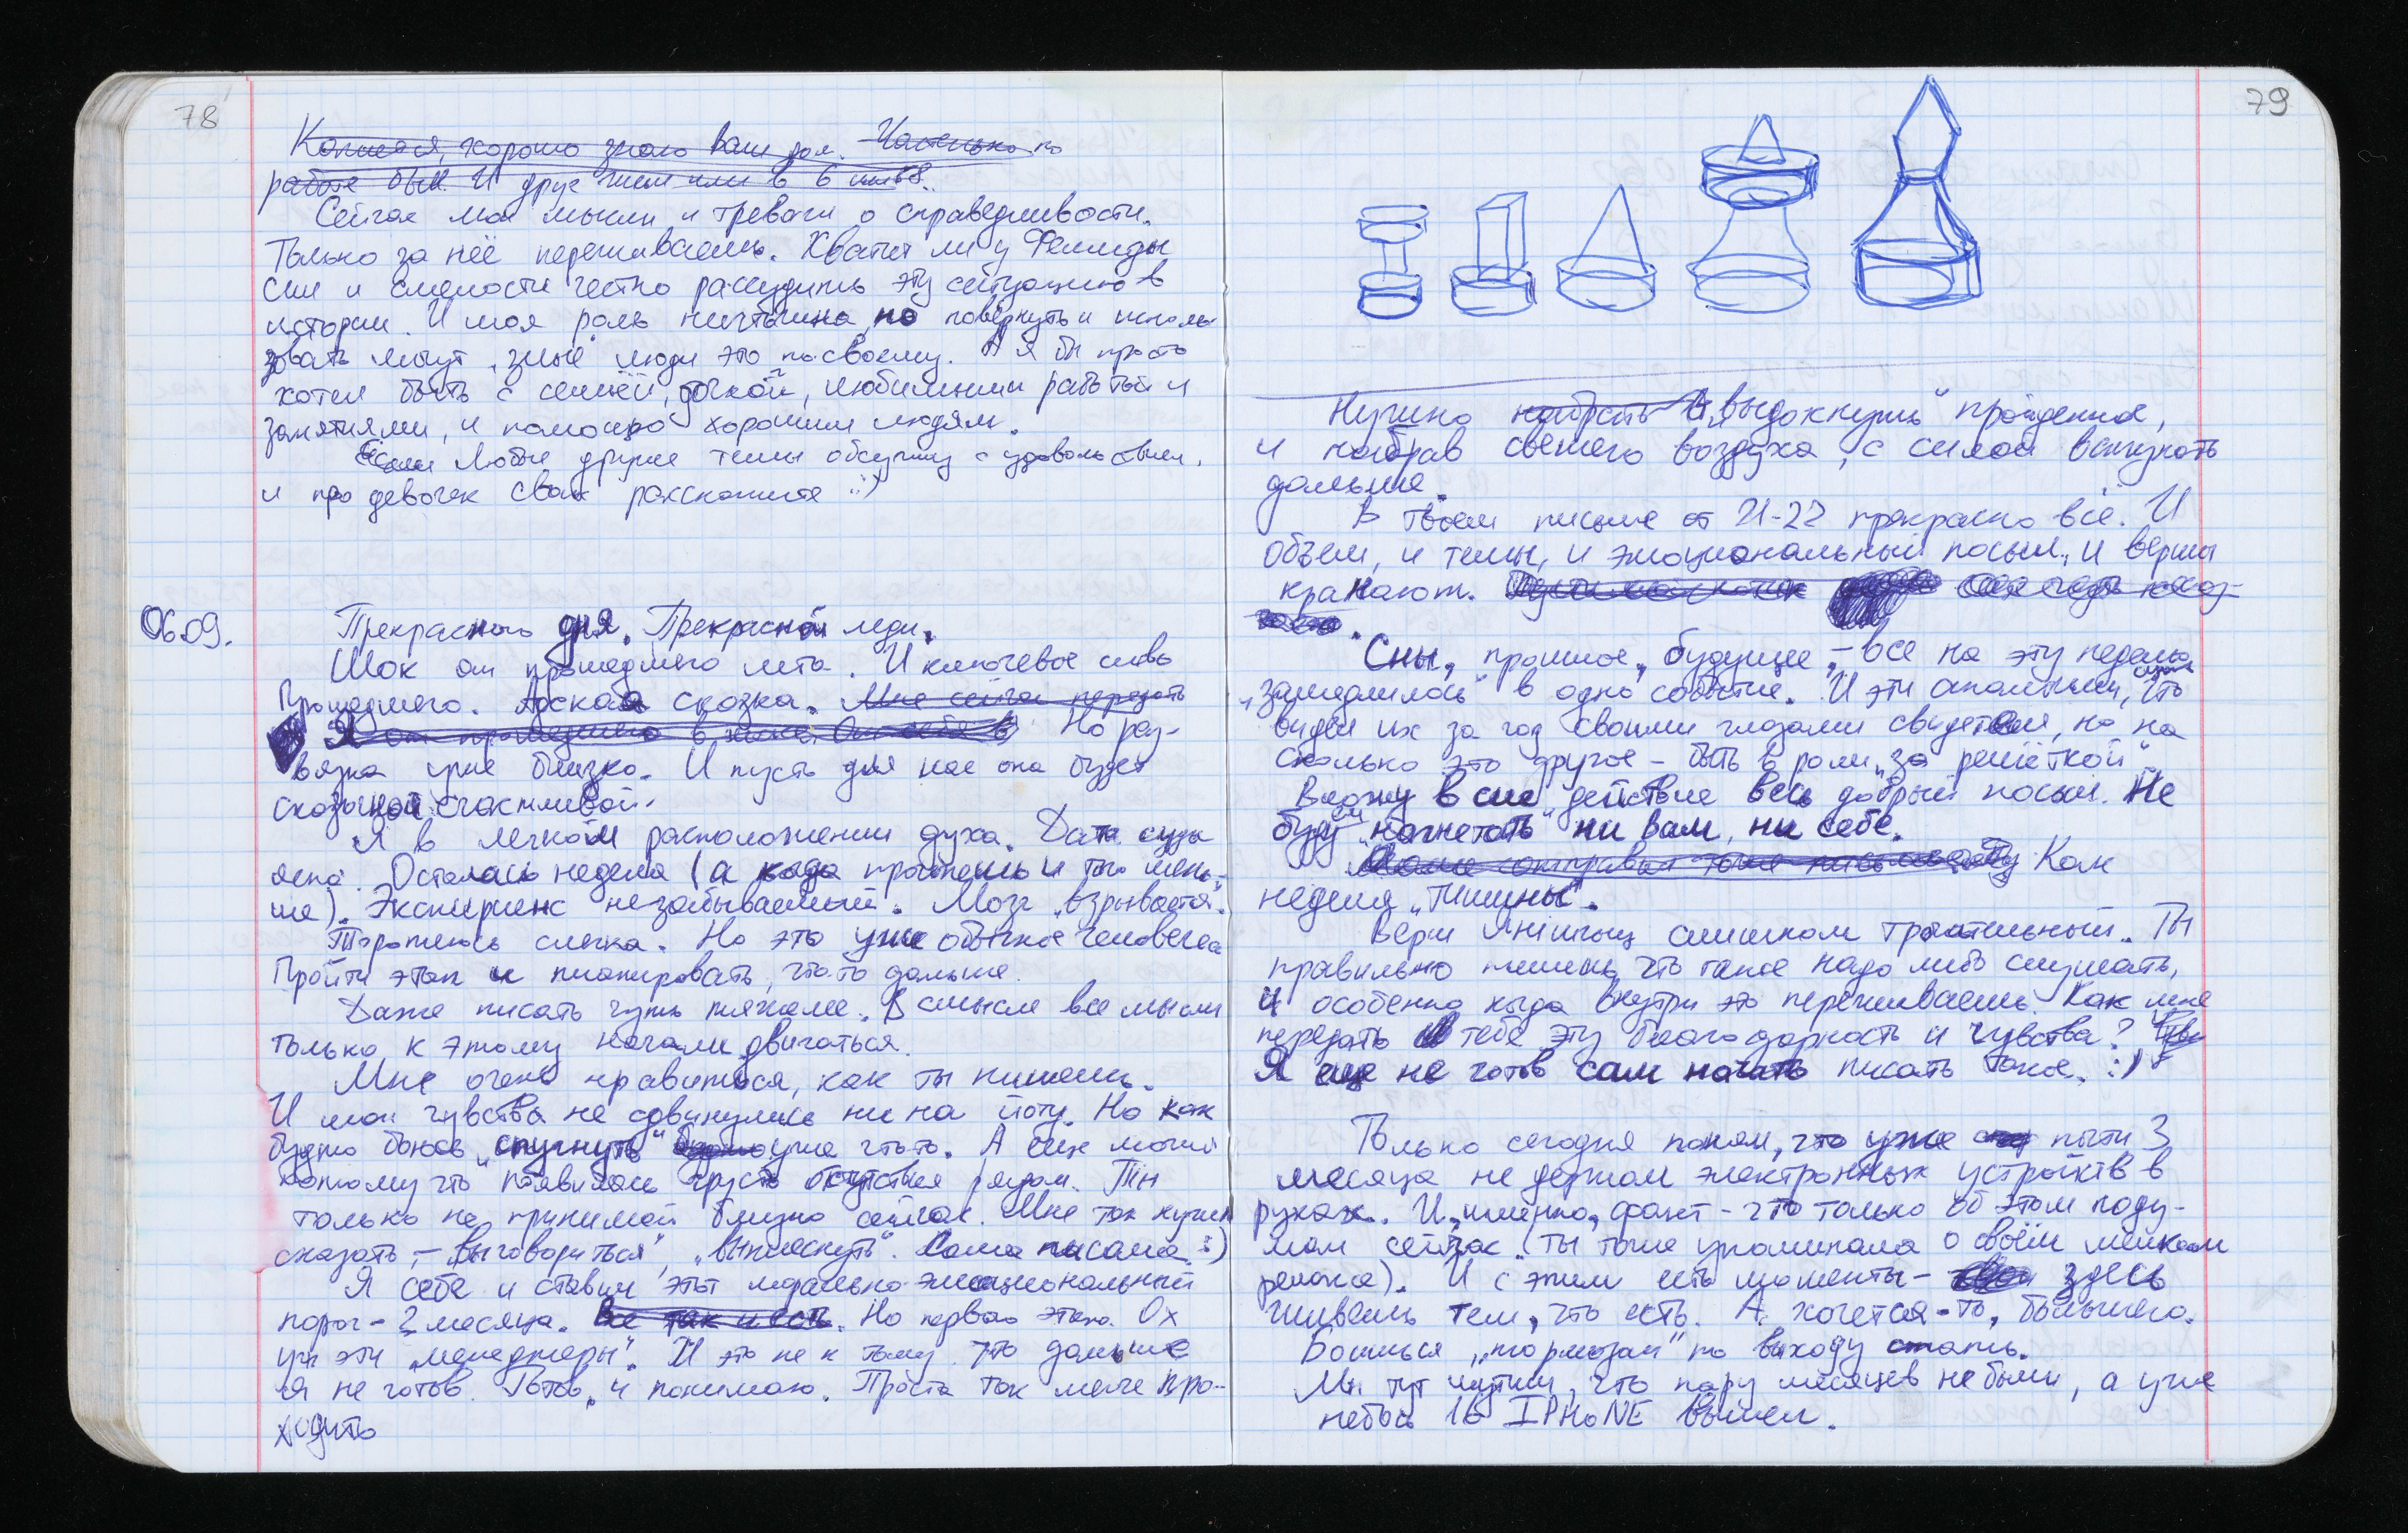 78
Кажется, хорошо знаю ваш дом. Частенько по
работе был. И друг жил или в 6 или 8.
Сейчас мои мысли и тревоги о справедливости.
Только за неё переживаешь. Хватит ли у Фемиды
сил и смелости честно рассудить эту ситуацию в
истории. И моя роль ничтожна, но повернуть и исполь
зовать могут "злые" люди это по-своему. А я бы просто
хотел быть с семьёй, дочкой, любимыми работой и
занятиями, и помощью хорошим людям.
Если Любые другие темы обсужу с удовольствием,
и про девочек своих расскажите :)
06.09.
Прекрасного дня, Прекрасной леди.
Шок от прошедшего лета. И ключевое слово
Прошедшего. Адская сказка. Мне сейчас передать
Но раз-
вязка уже близко. И пусть для нас она будет
сказочной счастливой.
Я в легком расположении духа. Дата суда
ясна. Осталась неделя (а когда прочтешь и того мень-
ше). Экспириенс незабываемый. Мозг "взрывается".
Торопишь слегка. Но это уже обычное человеческое
Пройти этап и планировать что-то дальше.
Даже писать чуть тяжелее. В смысле все мысли
только к этому начали двигаться.
Мне очень нравится, как ты пишешь.
И мои чувства не сдвинулись ни на йоту. Но как
будто боюсь "спугнуть" уже что-то. А еще может
потому что появилась грусть отсутствия рядом. Ты
только не принимай близко сейчас. Мне так нужно
сказать, - "выговориться", "выплеснуть". Сама писала :)
Я себе и ставил этот морально-эмоциональный
порог - 3 месяца. Все так и есть. Но первого этапа. Ох
уж эти "менеджеры". И это не к тому что дальше
я не готов. Готов и понимаю. Просто так легче про-
ходить
79
Нужно набрать А "выдохнуть" пройденное,
и набрав свежего воздуха, с силой вдохнуть
дальше.
В твоем письме от 21-22 прекрасно всё. И
объем, и темы, и эмоциональный посыл, и вершы
кранают.
Сны, прошлое, будущее, - все на эту неделю
"замедлилось" в одно событие. И эти апельсины, что
видел их за год своими глазами свидетеля, но на
сколько это другое - быть в роли "за решёткой".
Вложу в сие действие весь добрый посыл. Не
буду "нагнетать" ни вам, ни себе.
Как
неделя "тишины".
Верш Янiшчыц слишком трогательный. Ты
правильно пишешь, что такое надо либо слушать,
и особенно когда внутри это переживаешь. Как мне
передать тебе эту благодарность и чувства?
Я еще не готов сам начать писать такое. :)
Только сегодня понял, что уже почти 3
месяца не держал электронных устройств в
руках. И, именно, факт - что только об этом поду-
мал сейчас. (ты тоже упоминала о своём маленьком
релаксе). И с этим есть моменты - здесь
живешь тем, что есть. А хочется-то, большего.
Боишься "тормозом" по выходу стать.
Мы тут шутим, что пару месяцев не были, а уже
небось 16 IPHONE вышел.